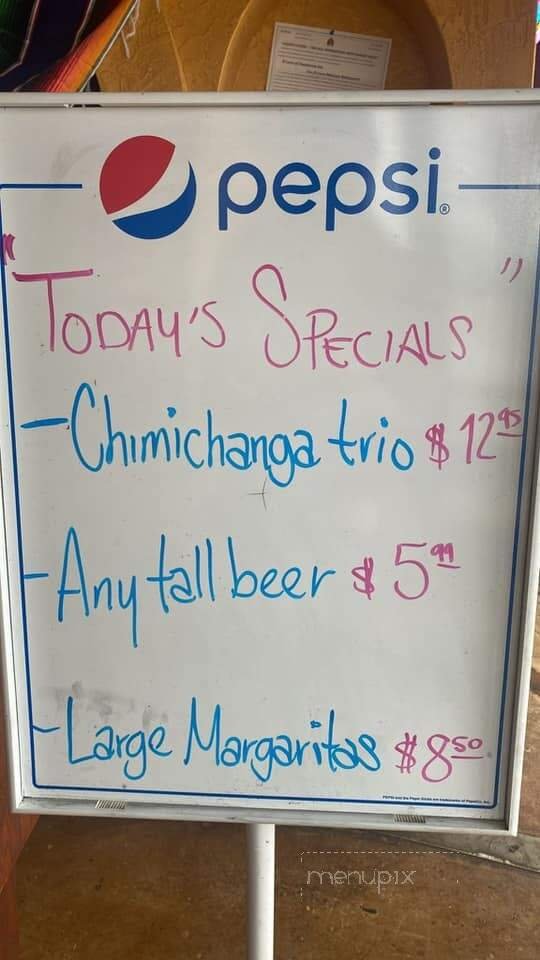 pepsi®
"Today's Specials"
- Chimichanga trio $ 12 95
- Any tall beer $ 5 99
- Large Margaritas $ 8 50
menupix